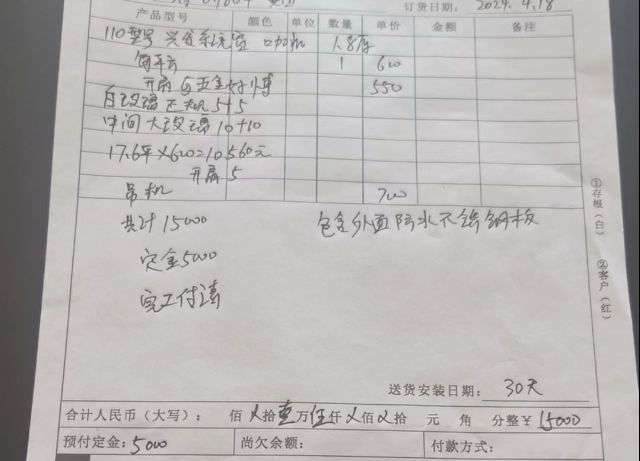 订货日期: 2024.4.18
产品型号 颜色 单位 数量 单价 金额 备注
110型号 兴发系统窗 咖啡 1.8厚
每平方 1 600
开扇 550
白玻璃 5+5
中间大玻璃 10+10
17.6平×600=10560元
开扇 5
吊机 700
共计15000 包含外面防水不锈钢板
定金5000
完工付清
①存根(白) ②客户(红)
送货安装日期: 30天
合计人民币(大写): 佰 拾壹万伍仟 佰 拾 元 角 分整¥ 15000
预付定金: 5000 尚欠余额: 付款方式: